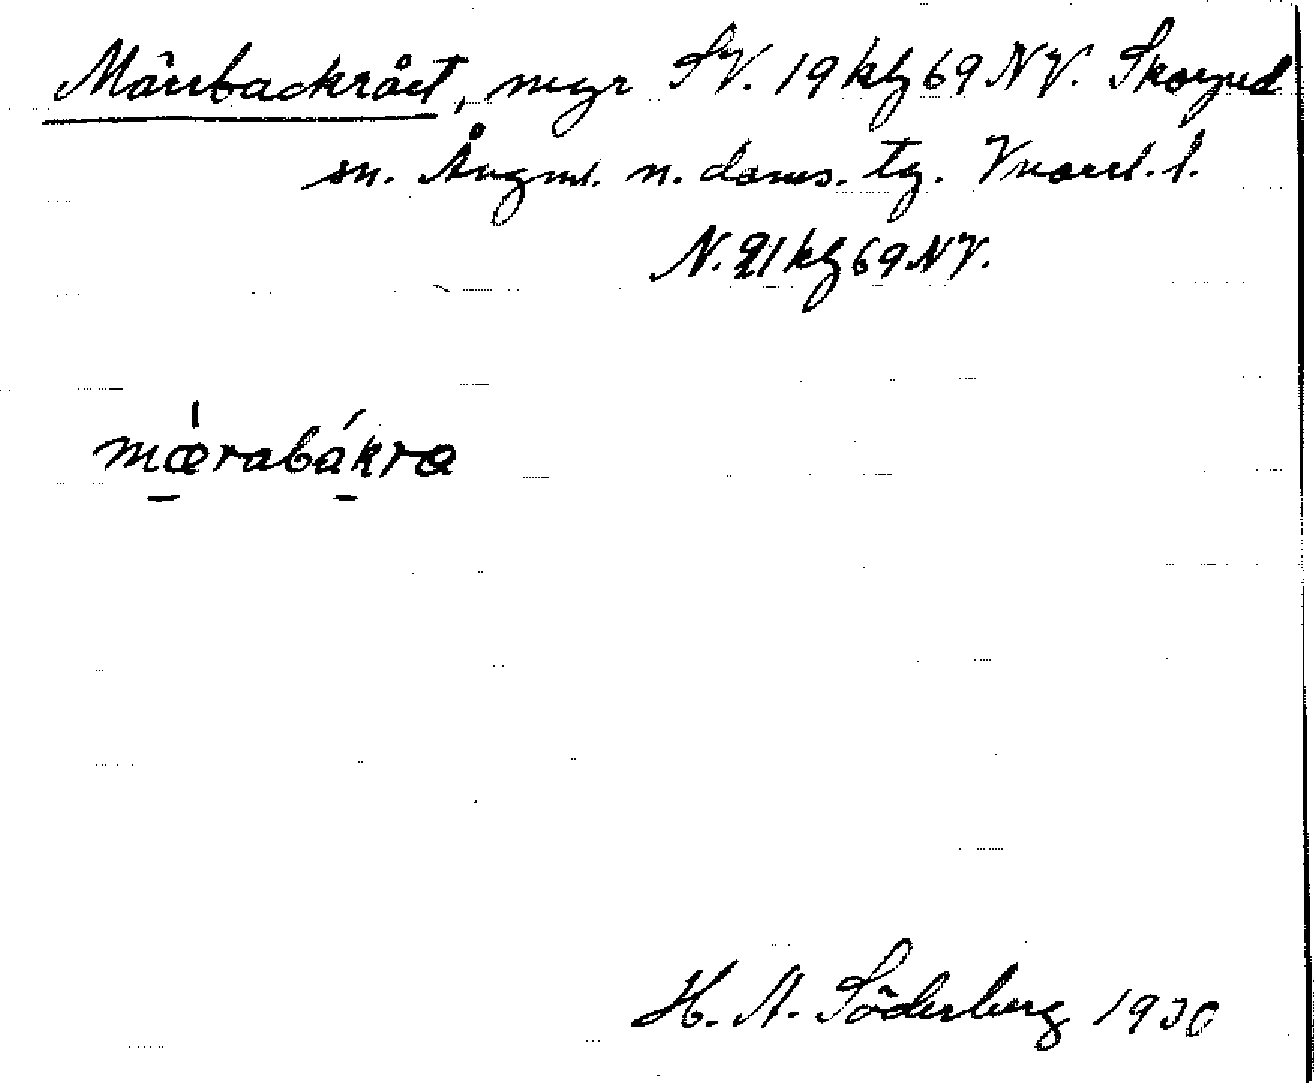 Märrbackrået, megr SV. 19 kf 69 NV. Skorped
sn. Ångml. n. doms. tg. Vnorrl. l.
N. 21 kf 69 NV.
mærabákra
H. A. Söderberg 1930